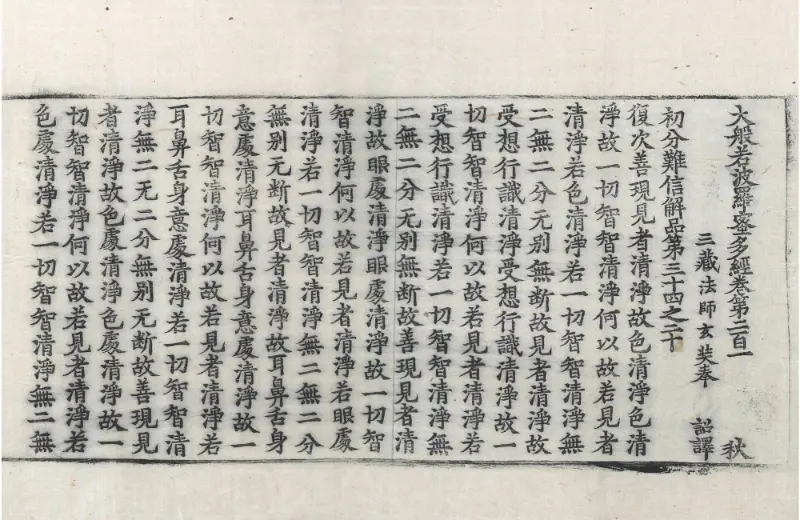 大般若波羅蜜多經卷第二百一 秋
三藏法師玄奘奉 詔譯
初分難信解品第三十四之二十
復次善現見者清淨故色清淨色清
淨故一切智智清淨何以故若見者
清淨若色清淨若一切智智清淨無
二無二分无别無斷故見者清淨故
受想行識清淨受想行識清淨故一
切智智清淨何以故若見者清淨若
受想行識清淨若一切智智清淨無
二無二分无别無斷故善現見者清
淨故眼處清淨眼處清淨故一切智
智清淨何以故若見者清淨若眼處
清淨若一切智智清淨無二無二分
無别无斷故見者清淨故耳鼻舌身
意處清淨耳鼻舌身意處清淨故一
切智智清淨何以故若見者清淨若
耳鼻舌身意處清淨若一切智智清
淨無二无二分無别无斷故善現見
者清淨故色處清淨色處清淨故一
切智智清淨何以故若見者清淨若
色處清淨若一切智智清淨無二無